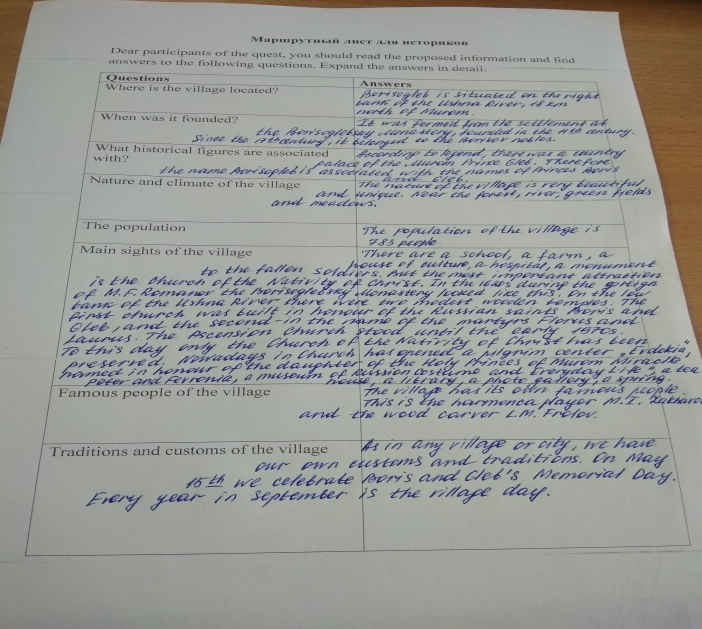 Маршрутный лист для историков
Dear participants of the quest, you should read the proposed information and find
answers to the following questions. Expand the answers in detail.
Questions
Answers
Where is the village located?
Borisogleb is situated on the right
bank of the Ushna River, 18 km
north of Murom.
When was it founded?
It was formed from the settlement at
the Borisoglebsky Monastery, founded in the 11th century.
Since the 17th century, it belonged to the
What historical figures are associated
with?
According to legend, there was a country
palace of the Murom Prince Gleb. Therefore
the name Borisogleb is associated with the names of Princes Boris
and Gleb.
Nature and climate of the village
The nature of the village is very beautiful
and unique. Near the forest, river, green fields
and meadows.
The population
The population of the village is
783 people
Main sights of the village
There are a school, a farm, a
house of culture, a hospital, a monument
to the fallen soldiers. But the most important attraction
is the Church of the Nativity of Christ. In the during the
of M.F. Romanov the Borisoglebsky Monastery looked like this. On the low
bank of the Ushna River there were two modest wooden temples. The
first church was built in honour of the Russian saints Boris and
Gleb, and the second - in the name of the martyrs Florus and
Laurus. The Ascension Church stood until the early
To this day only the Church of the Nativity of Christ has been
preserved. Nowadays in Church has opened a pilgrim center
named in honour of the daughter of the Holy Princes of Murom Miracle
Peter and Fevronia, a museum of Russian Costume and Everyday Life", a tea
house, a library, a photo gallery, a spring.
Famous people of the village
The village has its own famous people.
This is the harmonica player M.I.
and the wood carver L.M. Frolov.
Traditions and customs of the village
As in any village or city, we have
our own customs and traditions. On May
15th we celebrate Boris and Gleb's Memorial Day.
Every year in September is the village day.